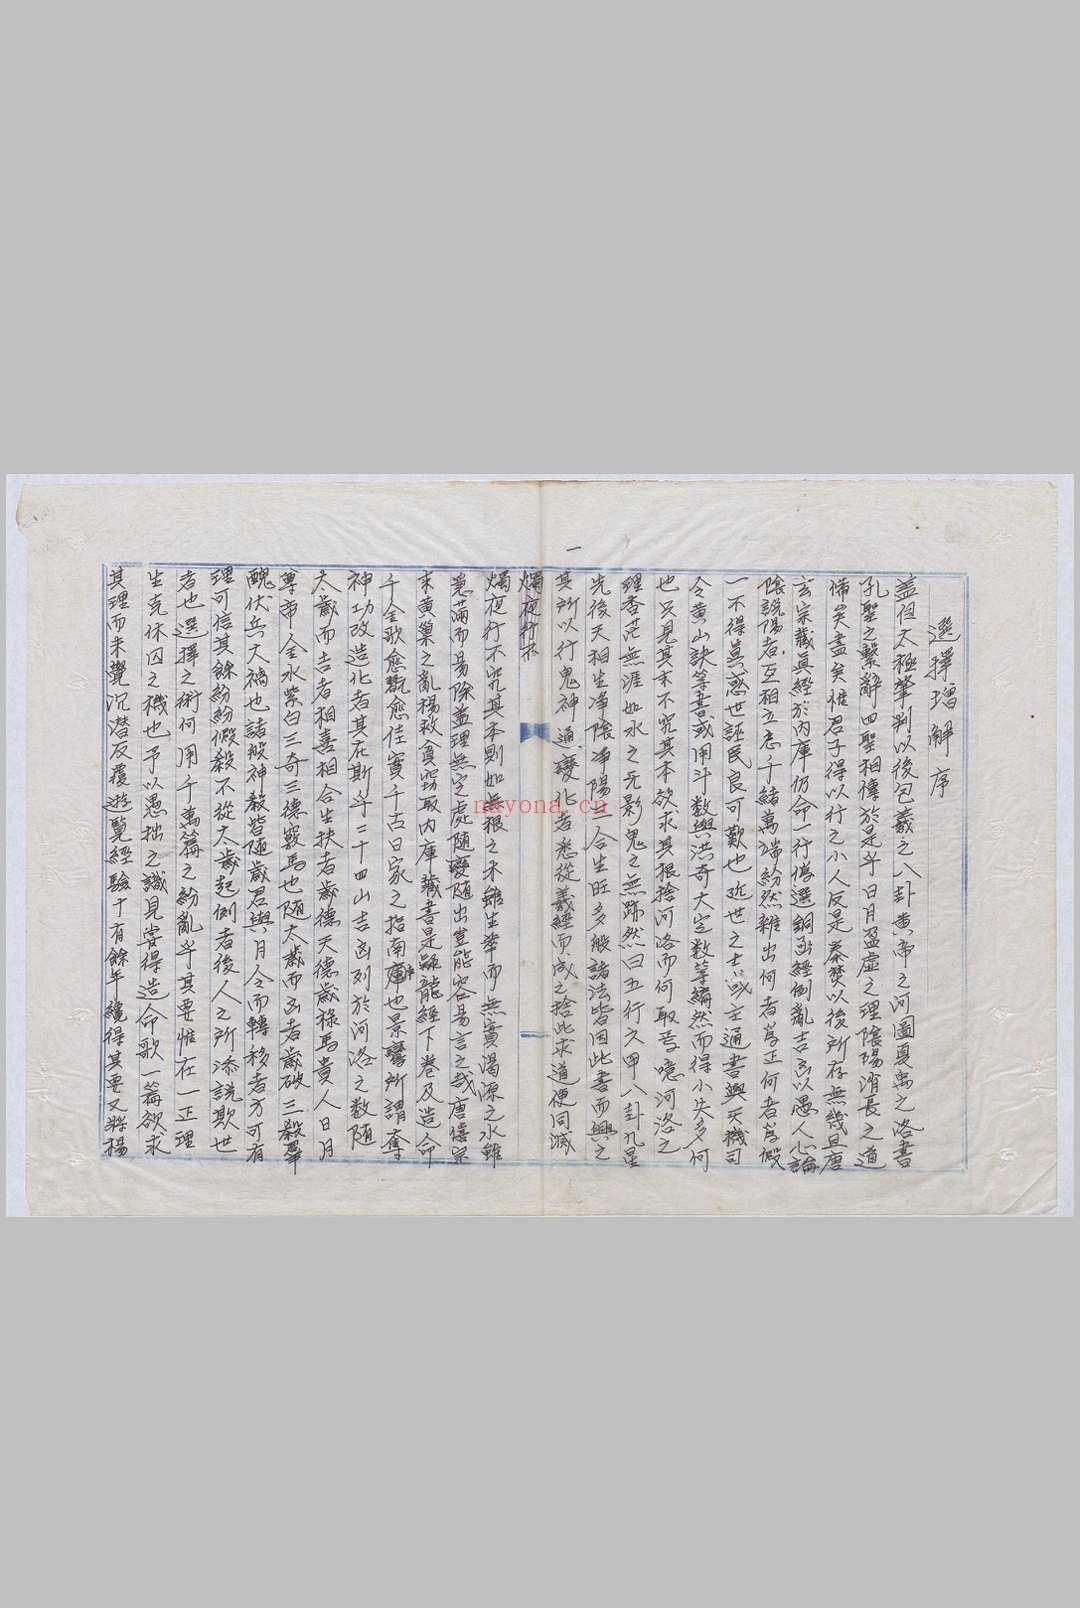 選擇增解序
盖自太極肇判以後包羲之八卦黃帝之河圖夏禹之洛書
孔聖之繫辭四聖相傳於是乎日月盈虛之理陰陽消長之道
備矣盡矣惟君子得以行之小人反是秦焚以後所存無幾且唐
玄宗藏眞經於內庫仍命一行僞選銅函經倒亂吉凶以愚人心論
陰說陽者互相立志千緖萬端紛然雜出何者爲正何者爲假
一不得眞惑世誣民良可歎也近世之士或主通書與天機司
令黃山訣等書或用斗數與洪奇大定數等編然而得小失多何
也只見其末不究其本欲求其根捨河洛而何取葢噫河洛之
理杳茫無涯如水之无影鬼之無跡然曰五行六甲八卦九星
先後天相生净陰净陽三合生旺多般諸法皆因此書而興之
其所以行鬼神通變化者悉從羲經而成之捨此求道便同滅
一
燭夜行不
燭夜行不究其本則如無根之木雖生華而無實渴源之水雖
覓滿而易除盖理無定處隨變隨出豈能容易言之哉唐僖宗
末黃巢之亂楊救貧窃取內庫藏書是疑龍經下卷及造命
千金歌愈觀愈佳實千古日家之指南車也景鸞所謂奪
神功改造化者其在斯乎二十四山吉凶列於河洛之數隨
太歲而吉者相喜相合生扶者歲德天德歲祿馬貴人日月
尊帝金水紫白三奇三德竅馬也隨太歲而凶者歲破三殺羣
醜伏兵大禍也諸般神殺皆隨歲君與月令而轉移者方可有
理可信其餘紛紛假殺不從太歲起例者後人之所添說欺世
者也選擇之術何用千萬篇之紛亂乎其要惟在一正理
生克休囚之機也予以愚拙之識見嘗得造命歌一篇欲求
其理而未覺沉潜反覆遊覽經驗十有餘年纔得其要又將楊
nayona.cn